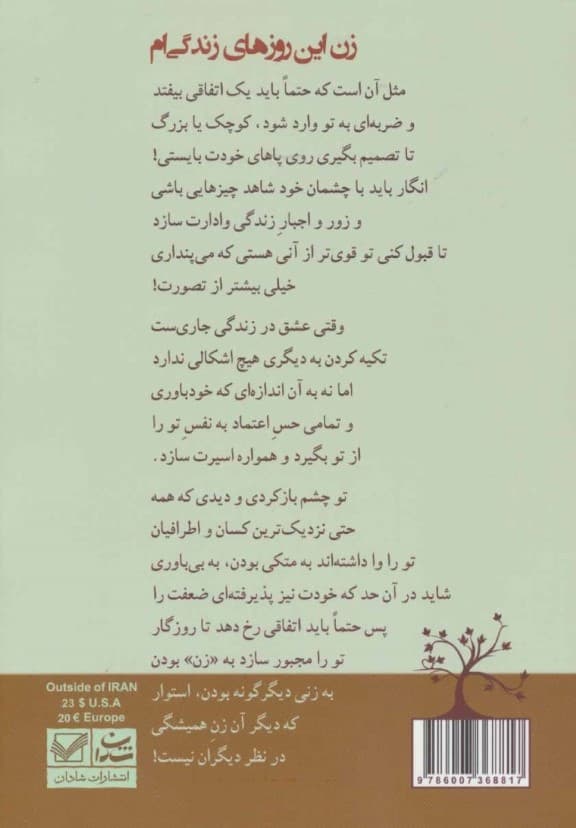 زن این روزهای زندگی‌ام
مثل آن است که حتماً باید یک اتفاقی بیفتد
و ضربه‌ای به تو وارد شود، کوچک یا بزرگ
تا تصمیم بگیری روی پاهای خودت بایستی!
انگار باید با چشمان خود شاهد چیزهایی باشی
و زور و اجبارِ زندگی وادارت سازد
تا قبول کنی تو قوی‌تر از آنی هستی که می‌پنداری
خیلی بیشتر از تصورت!
وقتی عشق در زندگی جاری‌ست
تکیه کردن به دیگری هیچ اشکالی ندارد
اما نه به آن اندازه‌ای که خودباوری
و تمامی حسِ اعتماد به نفسِ تو را
از تو بگیرد و همواره اسیرت سازد.
تو چشم بازکردی و دیدی که همه
حتی نزدیک‌ترین کسان و اطرافیان
تو را وا داشته‌اند به متکی بودن، به بی‌باوری
شاید در آن حد که خودت نیز پذیرفته‌ای ضعفت را
پس حتماً باید اتفاقی رخ دهد تا روزگار
تو را مجبور سازد به «زن» بودن
به زنی دیگرگونه بودن، استوار
که دیگر آن زن همیشگی
در نظر دیگران نیست!
Outside of IRAN
23 $ U.S.A
20 € Europe
شادان
انتشارات شادان
9 786007 368817